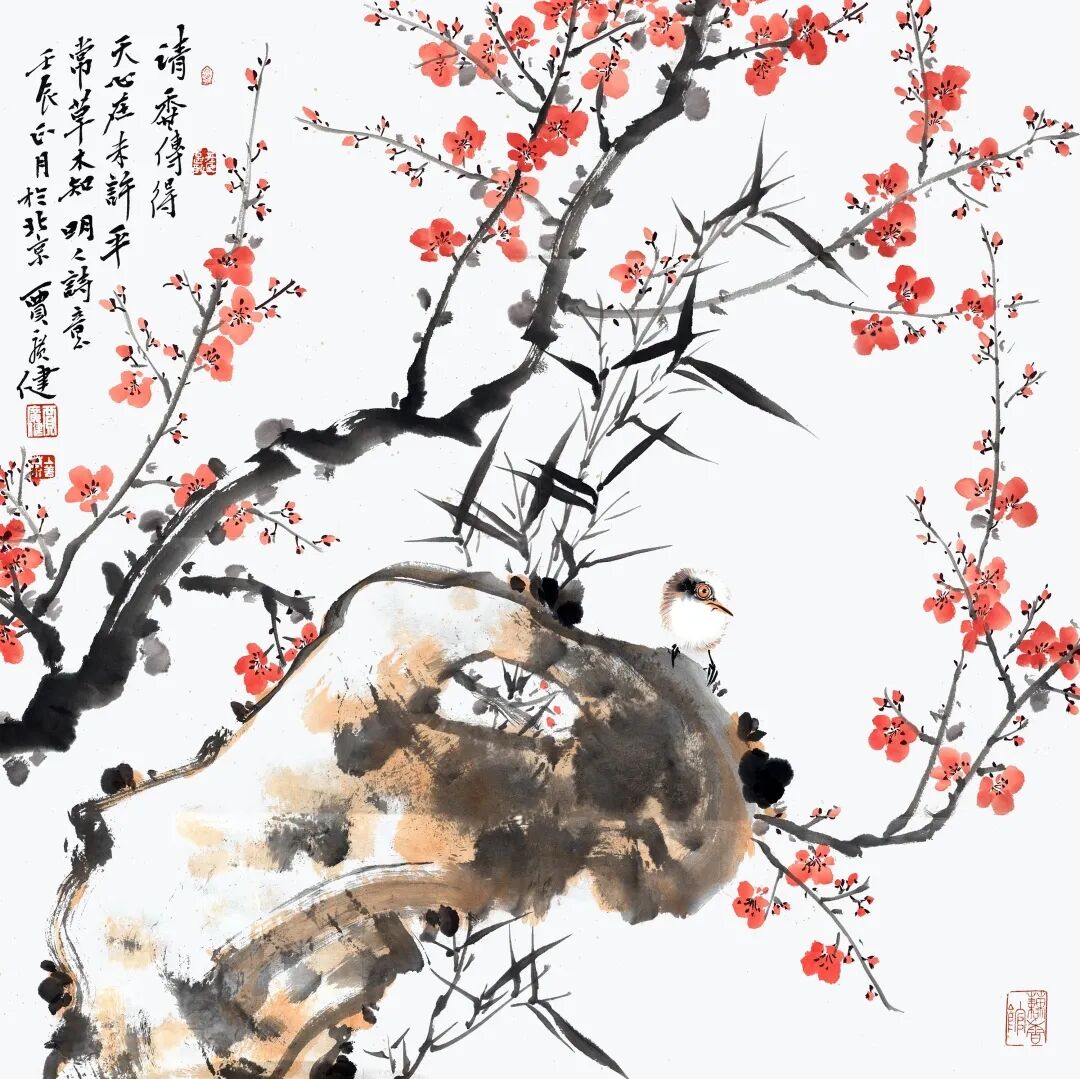 清香傳得
天心在未許平
常草木知 明人詩意
壬辰正月於北京 賈廣健
藕香館